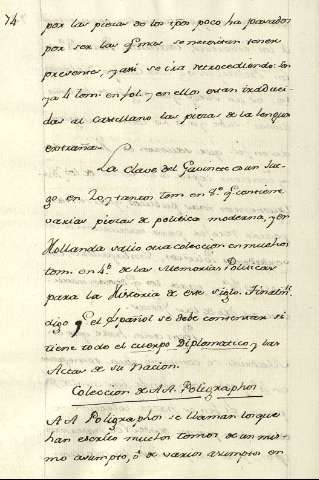 74
por las piezas de los tpos poco ha pasados
por ser las qe mas se necesitan tener
presentes, y asi se ira retrocediendo: son
ya 4 tom. en fol. y en ellos estan traduci-
das al castellano las piezas de la lengua
extraña.
La Clave del Gavinete es un Jue-
go en 20, y tantos tom. en 8.º q. contiene
varias piezas de politica moderna, y en
Hollanda salio otra coleccion en muchos
tom. en 4.º de las Memorias Politicas
para la Historia de este siglo. Finalmte
digo q el Español se debe contentar si
tiene todo el cuerpo Diplomatico, y las
Actas de su nacion.
Coleccion de AA. Poligraphos
AA. Poligraphos se llaman los que
han escrito muchos tomos de un mis-
mo asumpto, ó de varios asumptos en